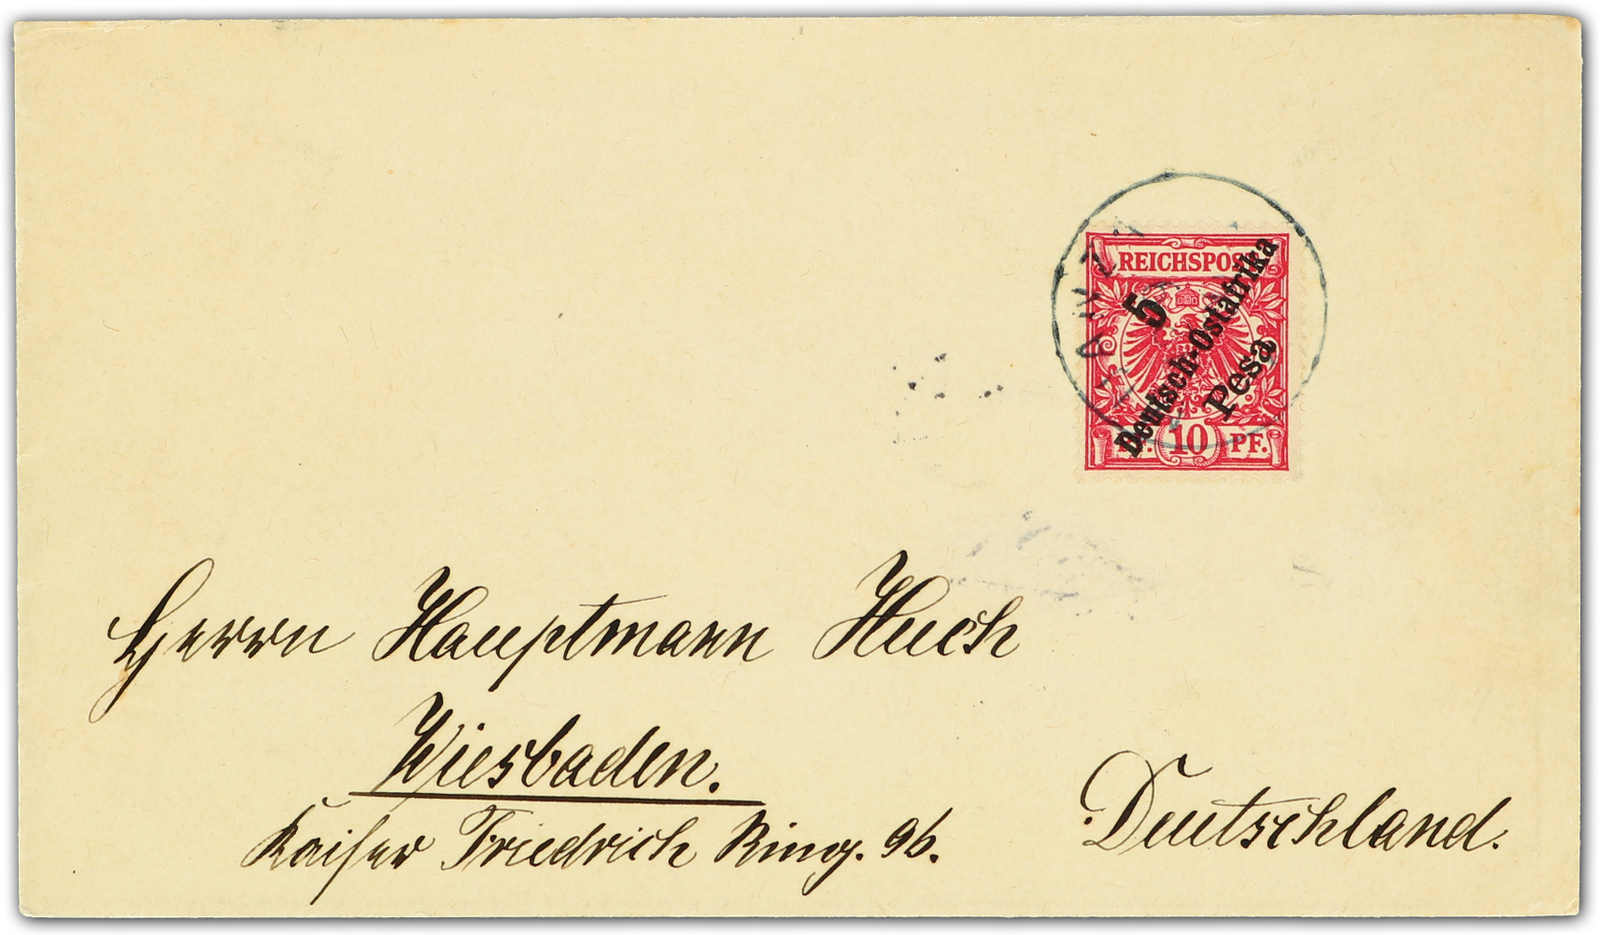 REICHSPOST
5
Deutsch-Ostafrika
Pesa
10 PF.
Herrn Hauptmann Huch
Wiesbaden.
Kaiser Friedrich Ring. 96.
Deutschland.